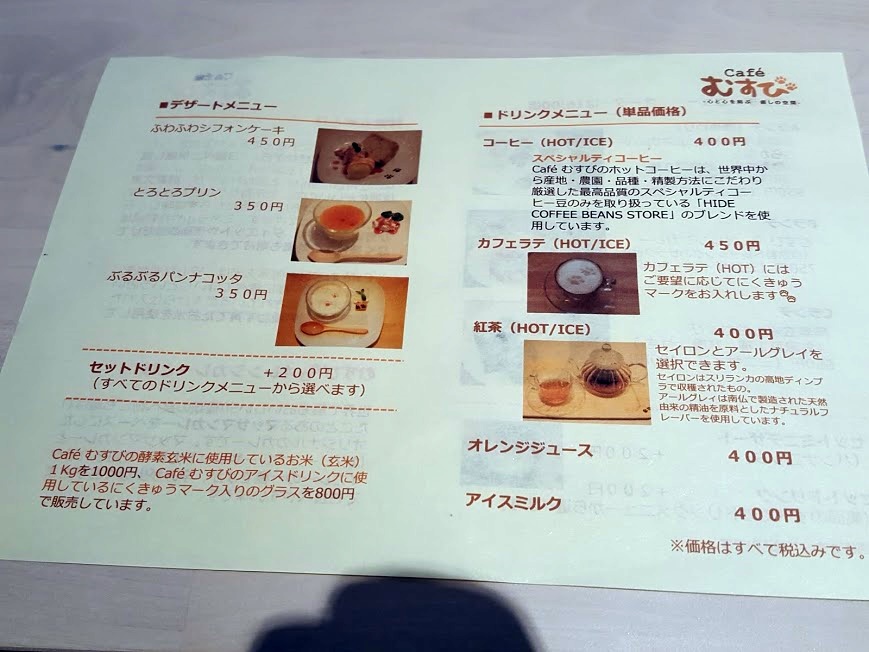 Café
むすび
-心と心を結ぶ 癒しの空間-
■デザートメニュー
ふわふわシフォンケーキ
450円
とろとろプリン
350円
ぷるぷるパンナコッタ
350円
セットドリンク +200円
(すべてのドリンクメニューから選べます)
Café むすびの酵素玄米に使用しているお米(玄米)
1Kgを1000円、Café むすびのアイスドリンクに使
用しているにくきゅうマーク入りのグラスを800円
で販売しています。
■ドリンクメニュー(単品価格)
コーヒー(HOT/ICE) 400円
スペシャルティコーヒー
Café むすびのホットコーヒーは、世界中か
ら産地・農園・品種・精製方法にこだわり
厳選した最高品質のスペシャルティコー
ヒー豆のみを取り扱っている「HIDE
COFFEE BEANS STORE」のブレンドを使
用しています。
カフェラテ(HOT/ICE) 450円
カフェラテ(HOT)には
ご要望に応じてにくきゅう
マークをお入れします
紅茶(HOT/ICE) 400円
セイロンとアールグレイを
選択できます。
セイロンはスリランカの高地ディンブ
ラで収穫されたもの。
アールグレィは南仏で製造された天然
由来の精油を原料としたナチュラルフ
レーバーを使用しています。
オレンジジュース 400円
アイスミルク 400円
※価格はすべて税込みです。